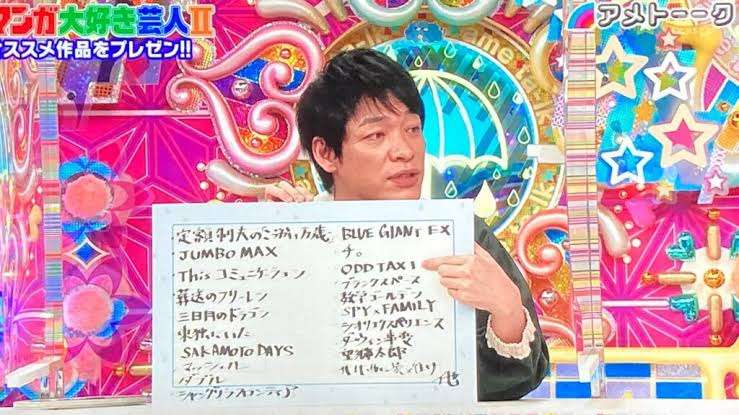 マンガ大好き芸人Ⅱ
オススメ作品をプレゼン!!
アメトーーク
定額制夫のこづかい万歳
JUMBO MAX
Thisコミュニケーション
葬送のフリーレン
三日月のドラゴン
東独にいた
SAKAMOTO DAYS
マッシュル
ダブル
シャングリラフロンティア
BLUE GIANT EX
チ。
ODD TAXI
ブランクスペース
数学ゴールデン
SPY×FAMILY
シオリエクスペリエンス
ダーウィン事変
望郷太郎